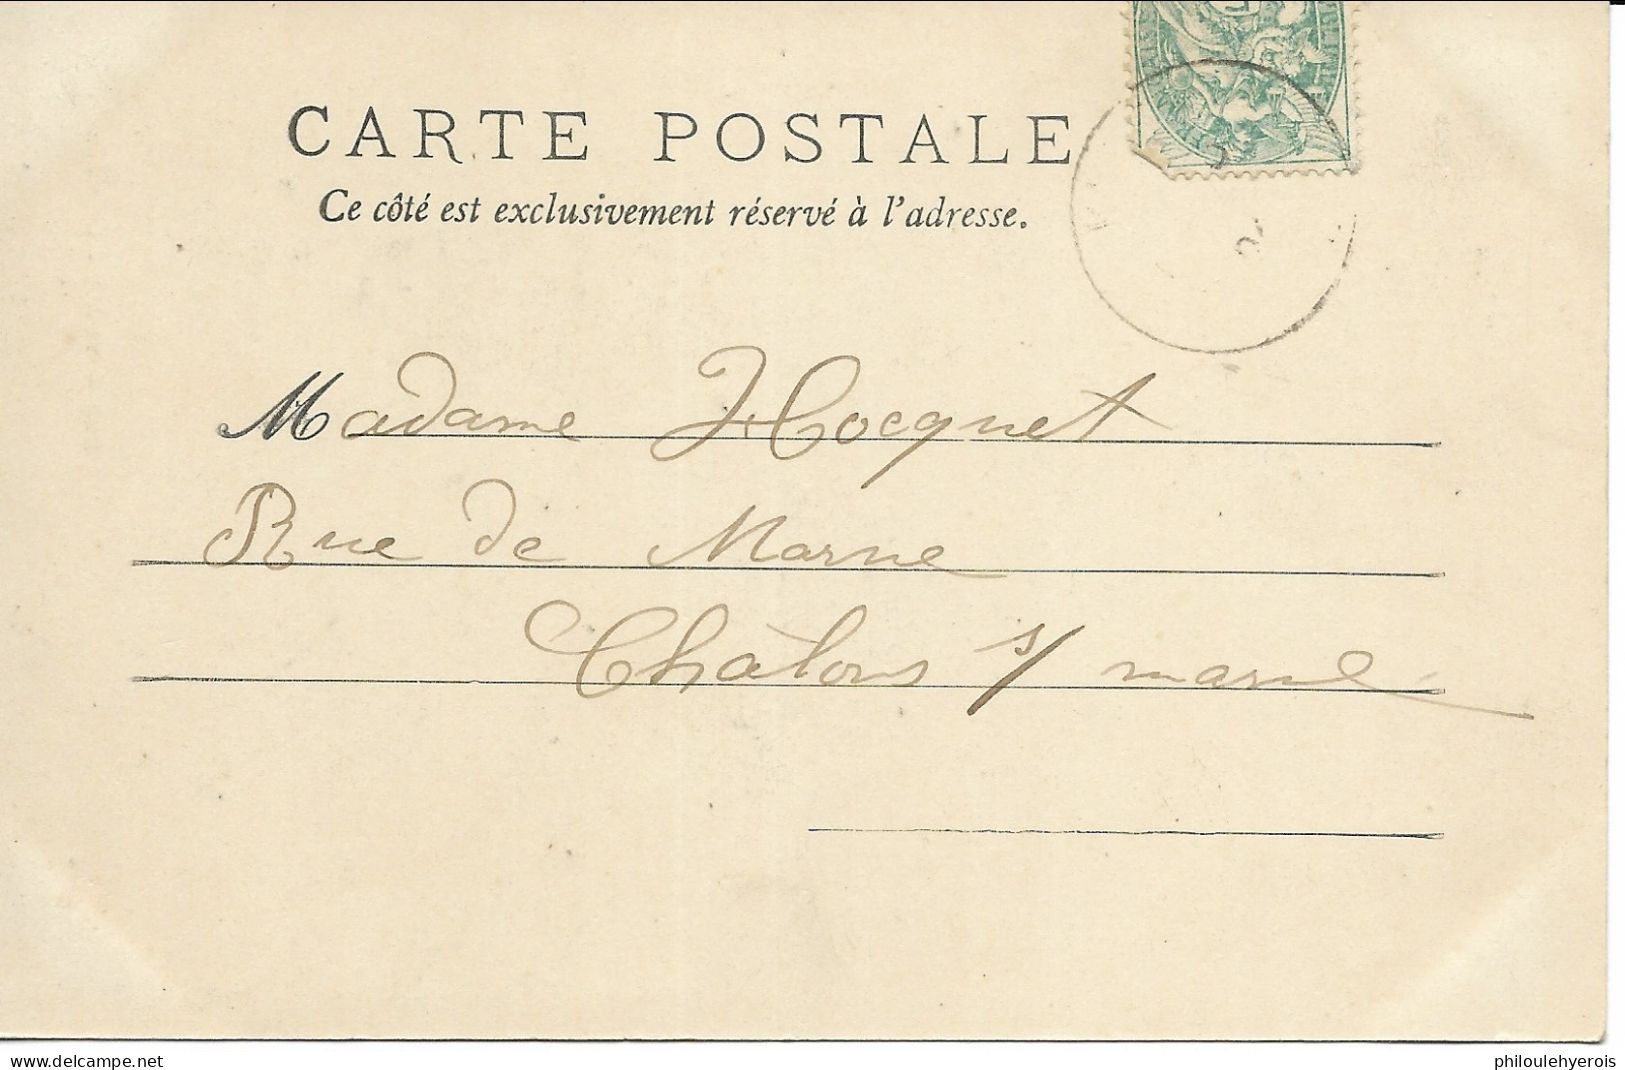 CARTE POSTALE
Ce côté est exclusivement réservé à l'adresse.
Madame Hocquet
Rue de Marne
Châlons s/ marne
delcampe.net
philoulehyerois